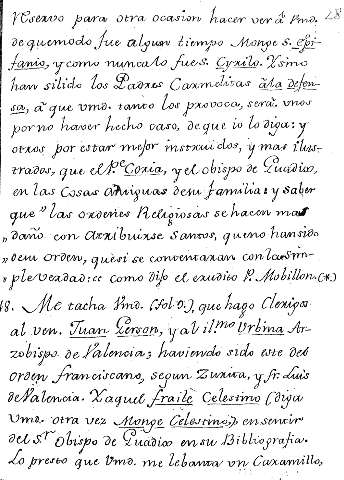 28
Reservo para otra ocasion hacer ver à Vmd.
de quemodo fue algun tiempo Monge S. Epi-
fanio, y como nunca lo fue S. Cyrilo. Y si no
han salido los Padres Carmelitas à la defen-
sa, à que Vmd. tanto los provoca, será: unos
por no haver hecho caso, de que io lo diga: y
otros por estar mejor instruidos, y mas ilus-
trados, que el Pe. Coria, y el obispo de Guadix,
en las Cosas Antiguas de su familia: y saber
que "las ordenes Religiosas se hacen mas
" daño con atribuirse Santos, que no han sido
" de su orden, que si se contentaran con la sim-
" ple verdad: como dijo el erudito P. Mobillon. (*)
18. Me tacha Vmd. (fol. 9.), que hago Clerigos
al ven. Juan Gerson, y al ilmo Urbina Ar-
zobispo de Valencia; haviendo sido este del
orden franciscano, segun Zurita, y fr. Luis
de Valencia. Y aquel fraile Celestino (diga
Vmd. otra vez Monge Celestino,) en sentir
del Sr. Obispo de Guadix en su Bibliografia.
Lo presto que Vmd. me lebanta un Caramillo,